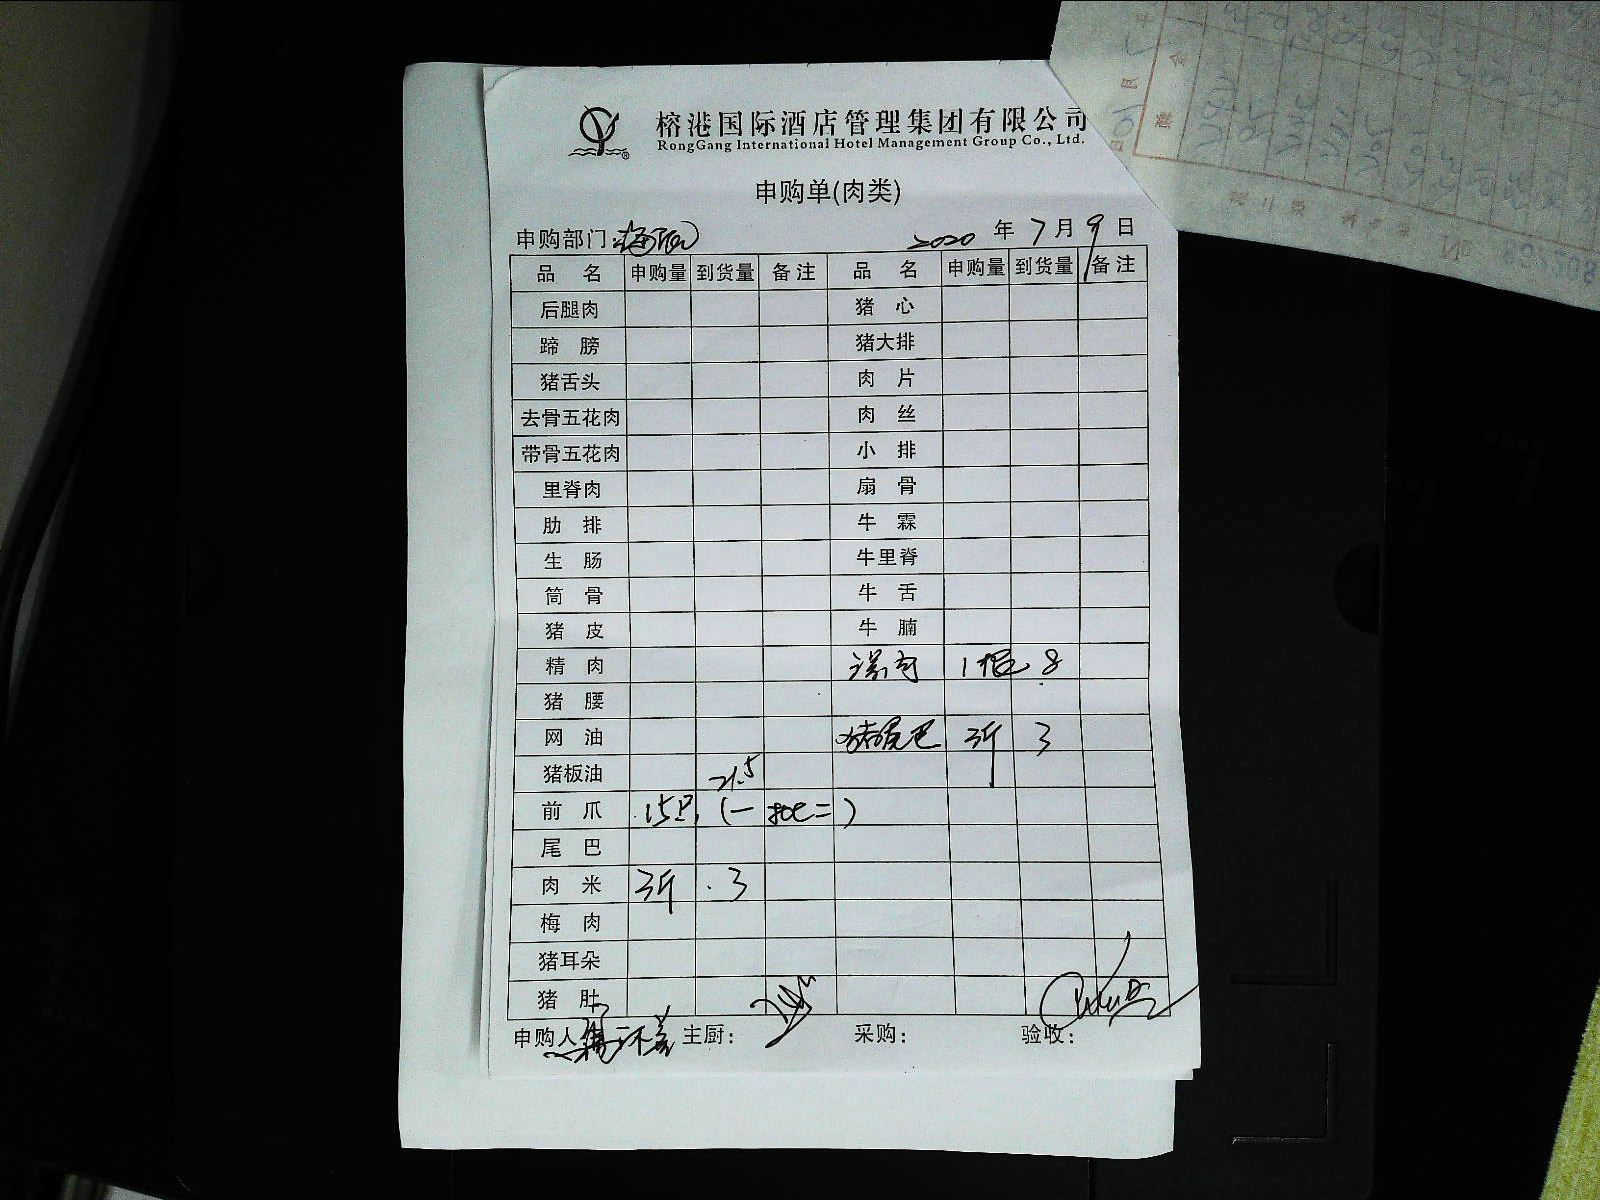 榕港国际酒店管理集团有限公司
RongGang International Hotel Management Group Co., Ltd.
申购单(肉类)
申购部门: 2020 年 7 月 9 日
品 名 申购量 到货量 备注 品 名 申购量 到货量 备注
后腿肉 猪 心
蹄 膀 猪大排
猪舌头 肉 片
去骨五花肉 肉 丝
带骨五花肉 小 排
里脊肉 扇 骨
肋 排 牛 霖
生 肠 牛里脊
筒 骨 牛 舌
猪 皮 牛 腩
精 肉 1根 8
猪 腰
网 油 猪尾巴 3斤 3
猪板油 21.5
前 爪 15只 (一 二)
尾 巴
肉 米 3斤 3
梅 肉
猪耳朵
猪 肚
申购人 主厨: 采购: 验收: